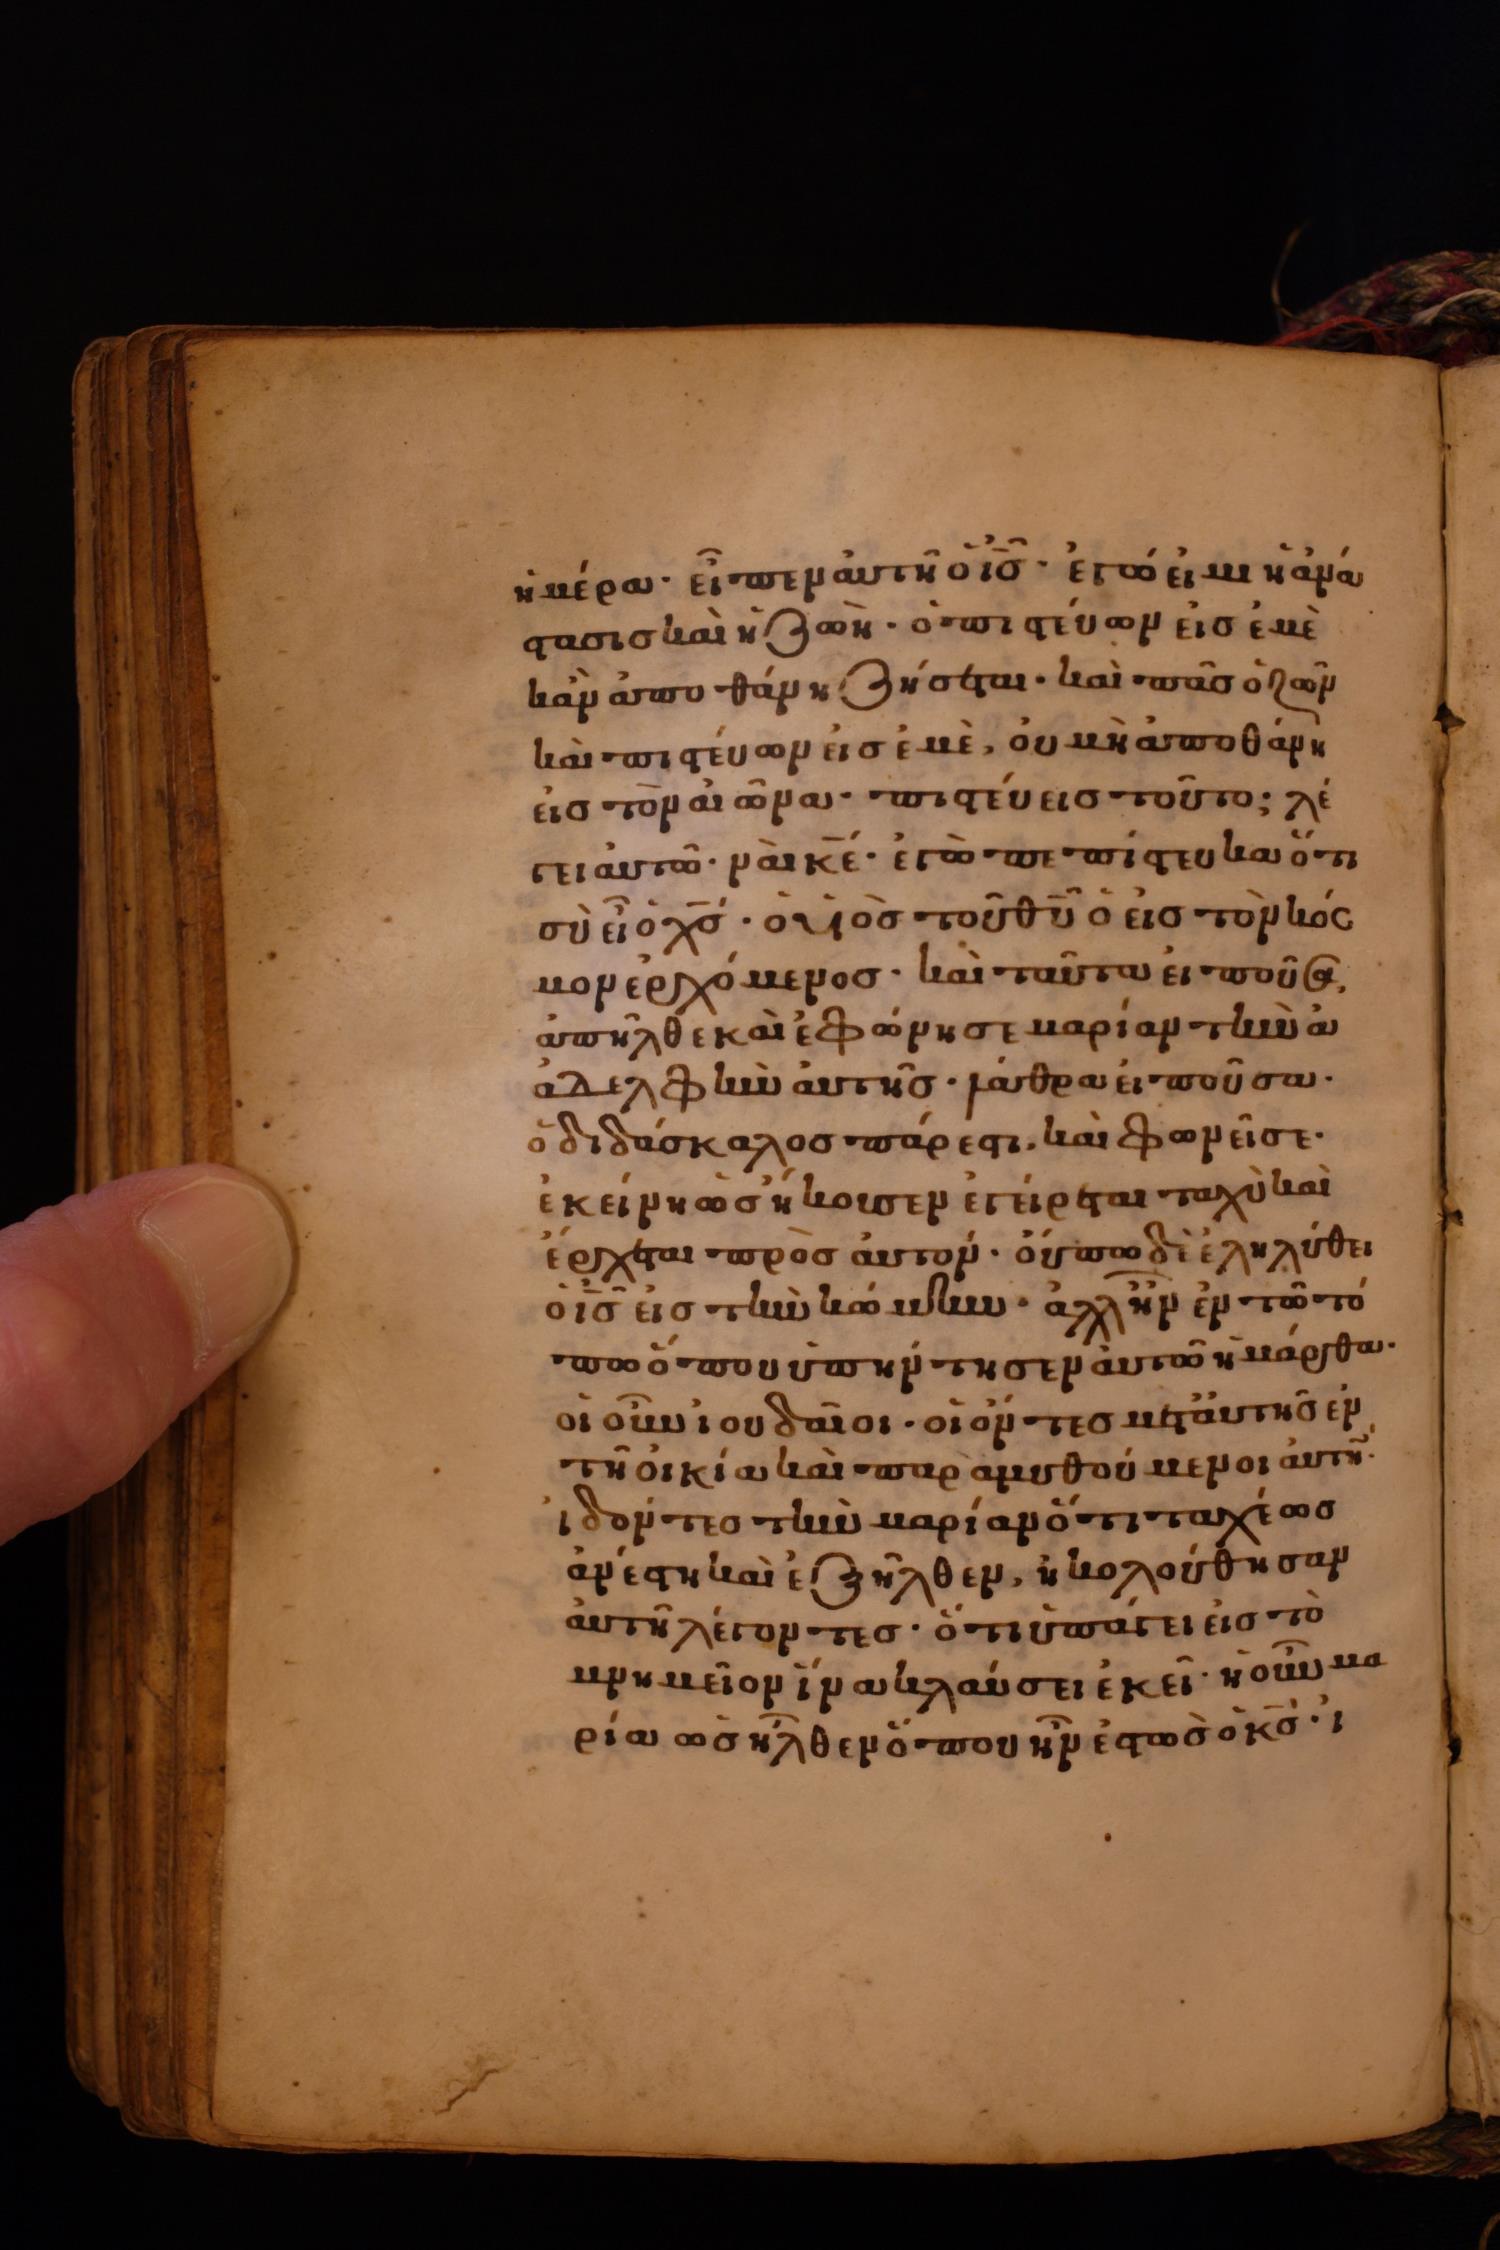 ἡμέρα· εἶπεν ἀυτῆ ὁ ἰ̅σ̅· ἐγώ ἐιμι ἡ ἀνά
στασισ καὶ ἡ ζωὴ· ὁ πιστέυων εἰσ ἐμὲ
κἀν ἀποθάνη ζήσεται· καὶ πᾶσ ὁ ζῶν
καὶ πιστέυων ἐισ ἐμὲ, ὀυ μὴ ἀποθάνη
ἐισ τὸν ἀιῶνα· πιστέυεισ τοῦτο; λέ
γει ἀυτῶ· ναὶ κ̅ε̅· ἐγὼ πεπίστευκα ὅτι
σὺ εἶ ὁ χ̅σ̅· ὁ υἱὸσ τοῦ θ̅υ̅ ὁ ἐισ τὸν κόσ
μον ἐρχόμενοσ· καὶ ταῦτα ἐιποῦσα,
ἀπῆλθε καὶ ἐφώνησε μαρίαν τὴν ἀ
ἀδελφὴν ἀυτῆσ· λάθρα ἐιποῦσα·
ὁ διδάσκαλοσ πάρεστι, καὶ φωνεῖ σε·
ἐκείνη ὡσ ἤκουσεν ἐγείρεται ταχὺ καὶ
ἔρχεται πρὸσ ἀυτον· ὄυπω δὲ ἐληλύθει
ὁ ἰ̅σ̅ ἐισ τὴν κώμην· ἀλλ ἦν ἐν τῶ τό
πω ὅπου ὑπήντησεν ἀυτῶ ἡ μάρθα·
οἱ οὖν ἰουδαῖοι· οἱ ὄντεσ μετ ἀυτῆσ ἐν
τῆ ὀικία καὶ παραμυθούμενοι ἀυτὴν·
ἰδόντεσ τὴν μαρίαν ὅτι ταχέωσ
ἀνέστη καὶ ἐξῆλθεν, ἠκολούθησαν
ἀυτῆ λέγοντεσ· ὅτι ὑπάγει ἐισ τὸ
μνημεῖον ἵνα κλαύσει ἐκεῖ· ἡ οὖν μα
ρία ὡσ ἦλθεν ὅπου ἦν ἑστὼσ ὁ κ̅σ̅· ἰ